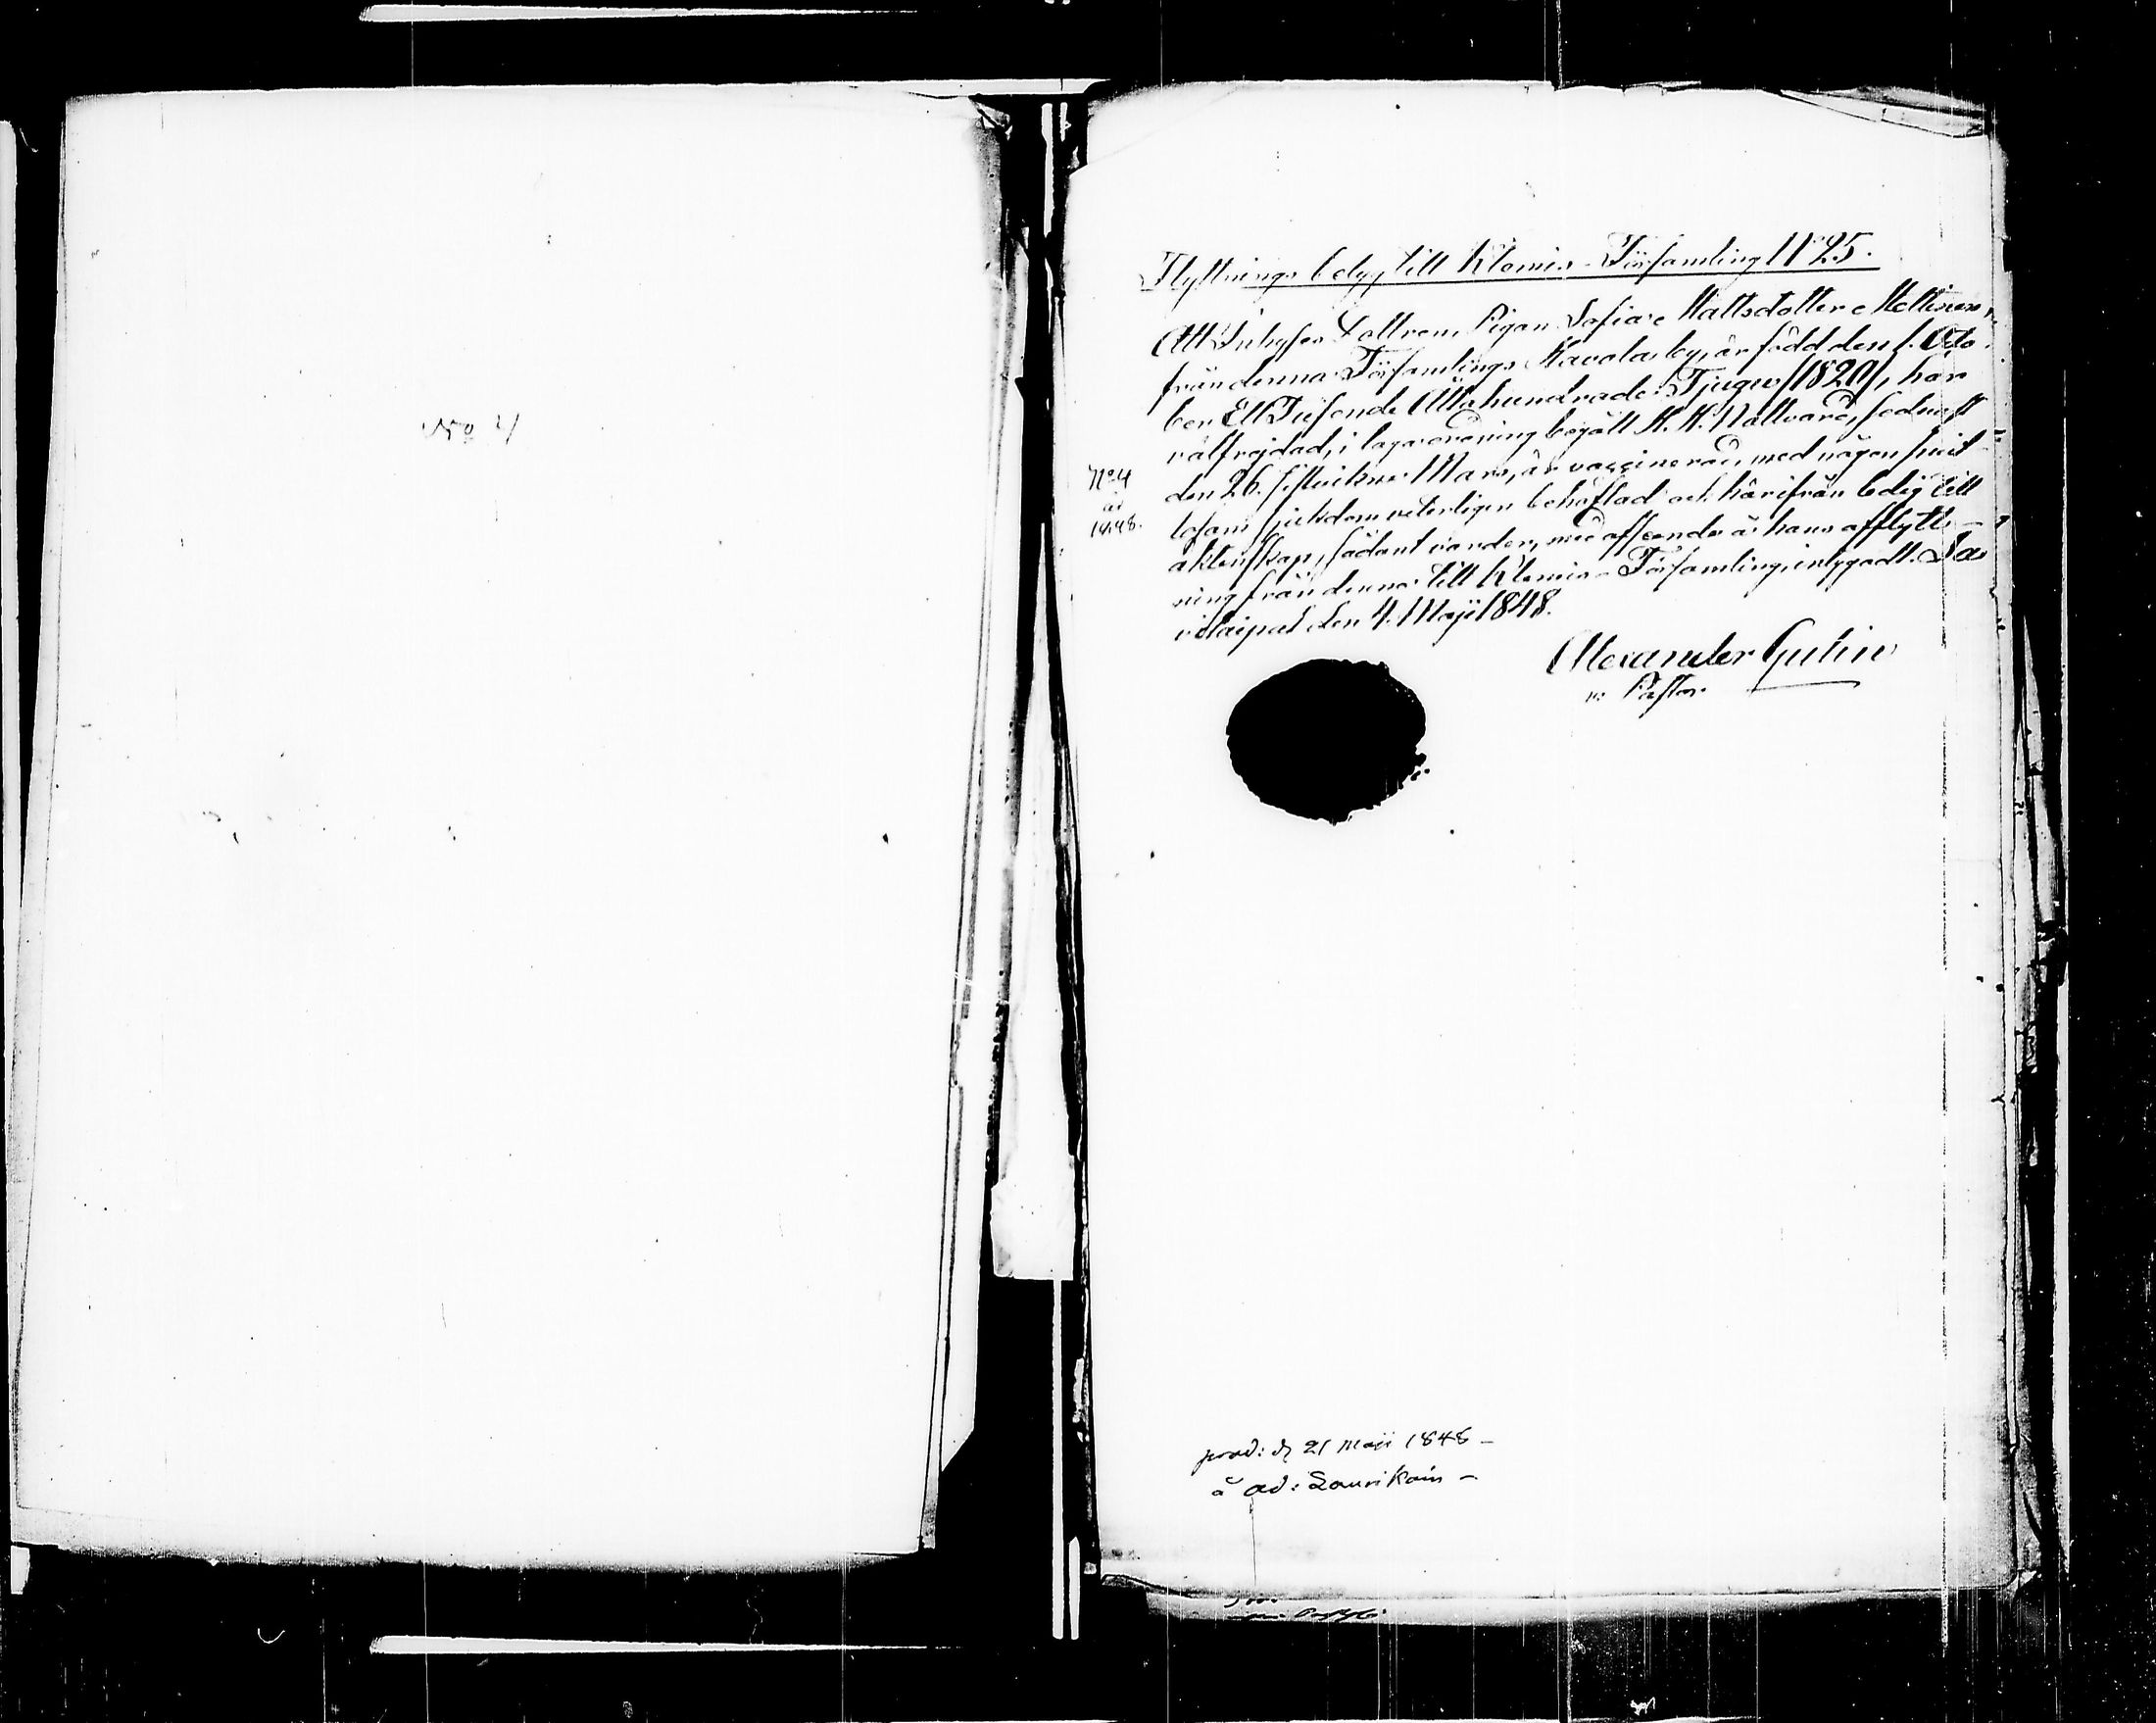 No 4
Flyttnings betyg till Klemis-Församling No 25.
Att Inhyses Dottren, Pigan Sofia Mattsdotter Meltinen
från denna Församlings Kavala by, är född den 1. Octo-
ber Ett Tusende Åttahundrade Tjugu /1820/, har
välfrejdad, i laga ordning begått H. H. Nattvard, sednast
den 26. sistvikne Mars, är vaccinerad, med någon smit-
tosam sjukdom veterligen behäftad och härifrån ledig till
No 4
år
1848.
äktenskap; sådant varder, med afseende å hans afflytt-
ning från denna till Klemis-Församling, intygadt. Sa-
vitaipal den 4. Maji 1848.
Alexander Gulin
v: Pastor
prod: d 21 Maji 1848 -
å ad: Laurikain -